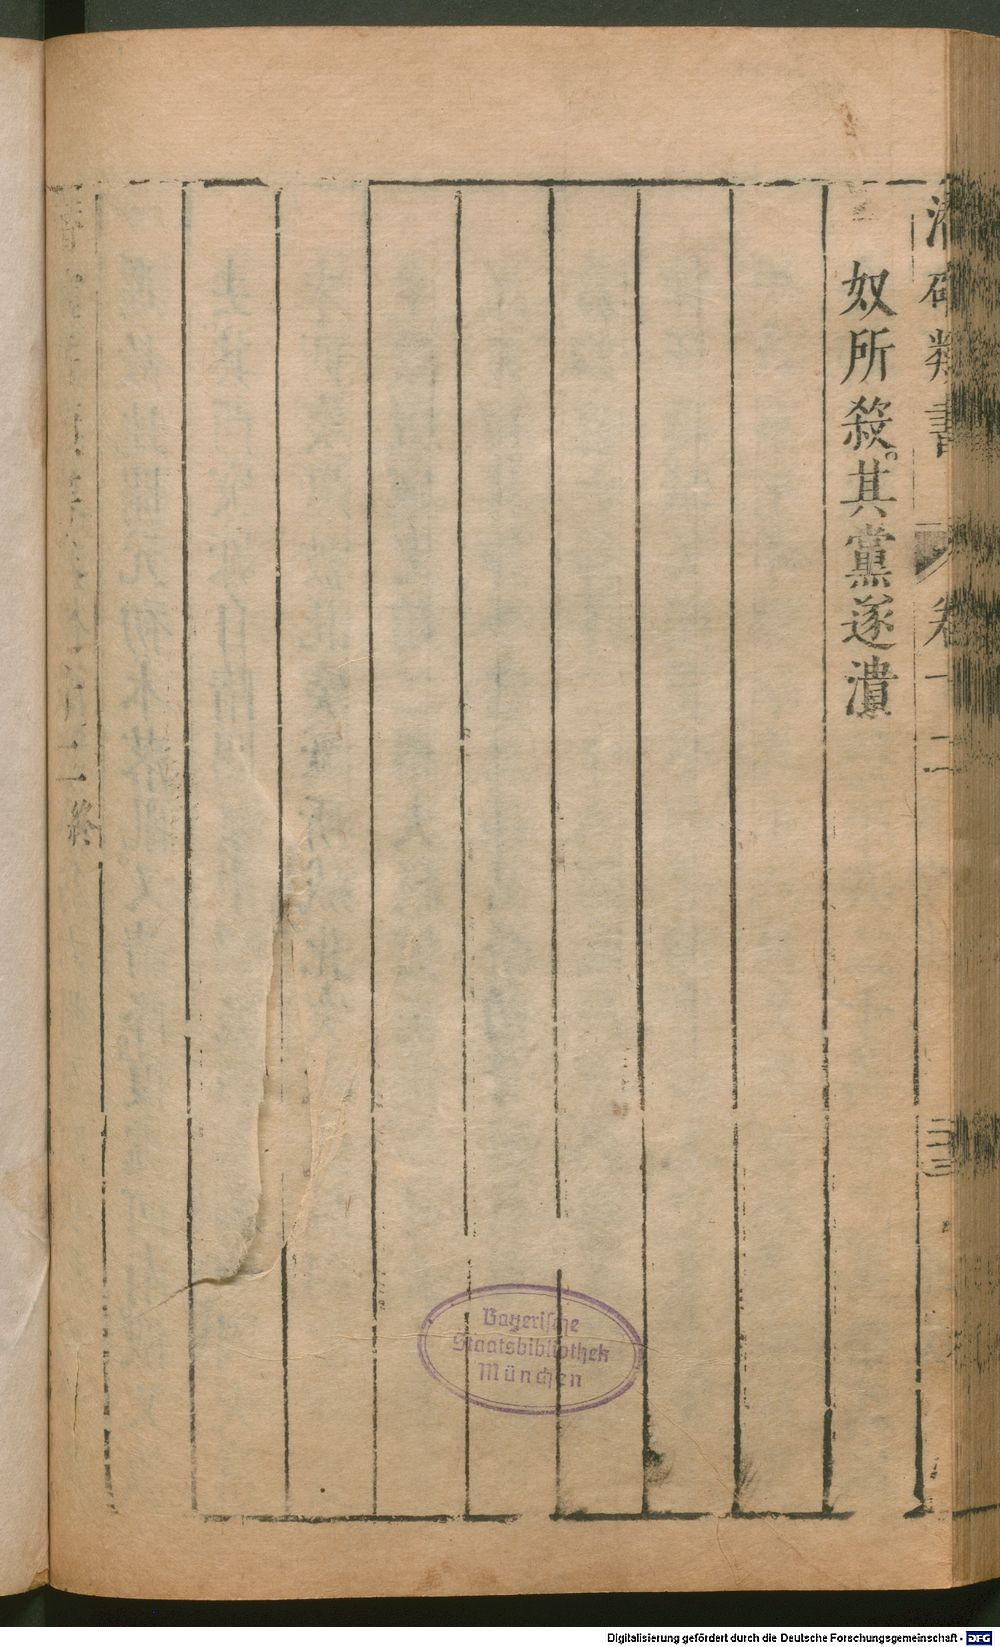 潛確類書
卷十二
二十三
奴所殺。其黨遂潰
二終
Bayerische
Staatsbibliothek
München
Digitalisierung gefördert durch die Deutsche Forschungsgemeinschaft - DFG